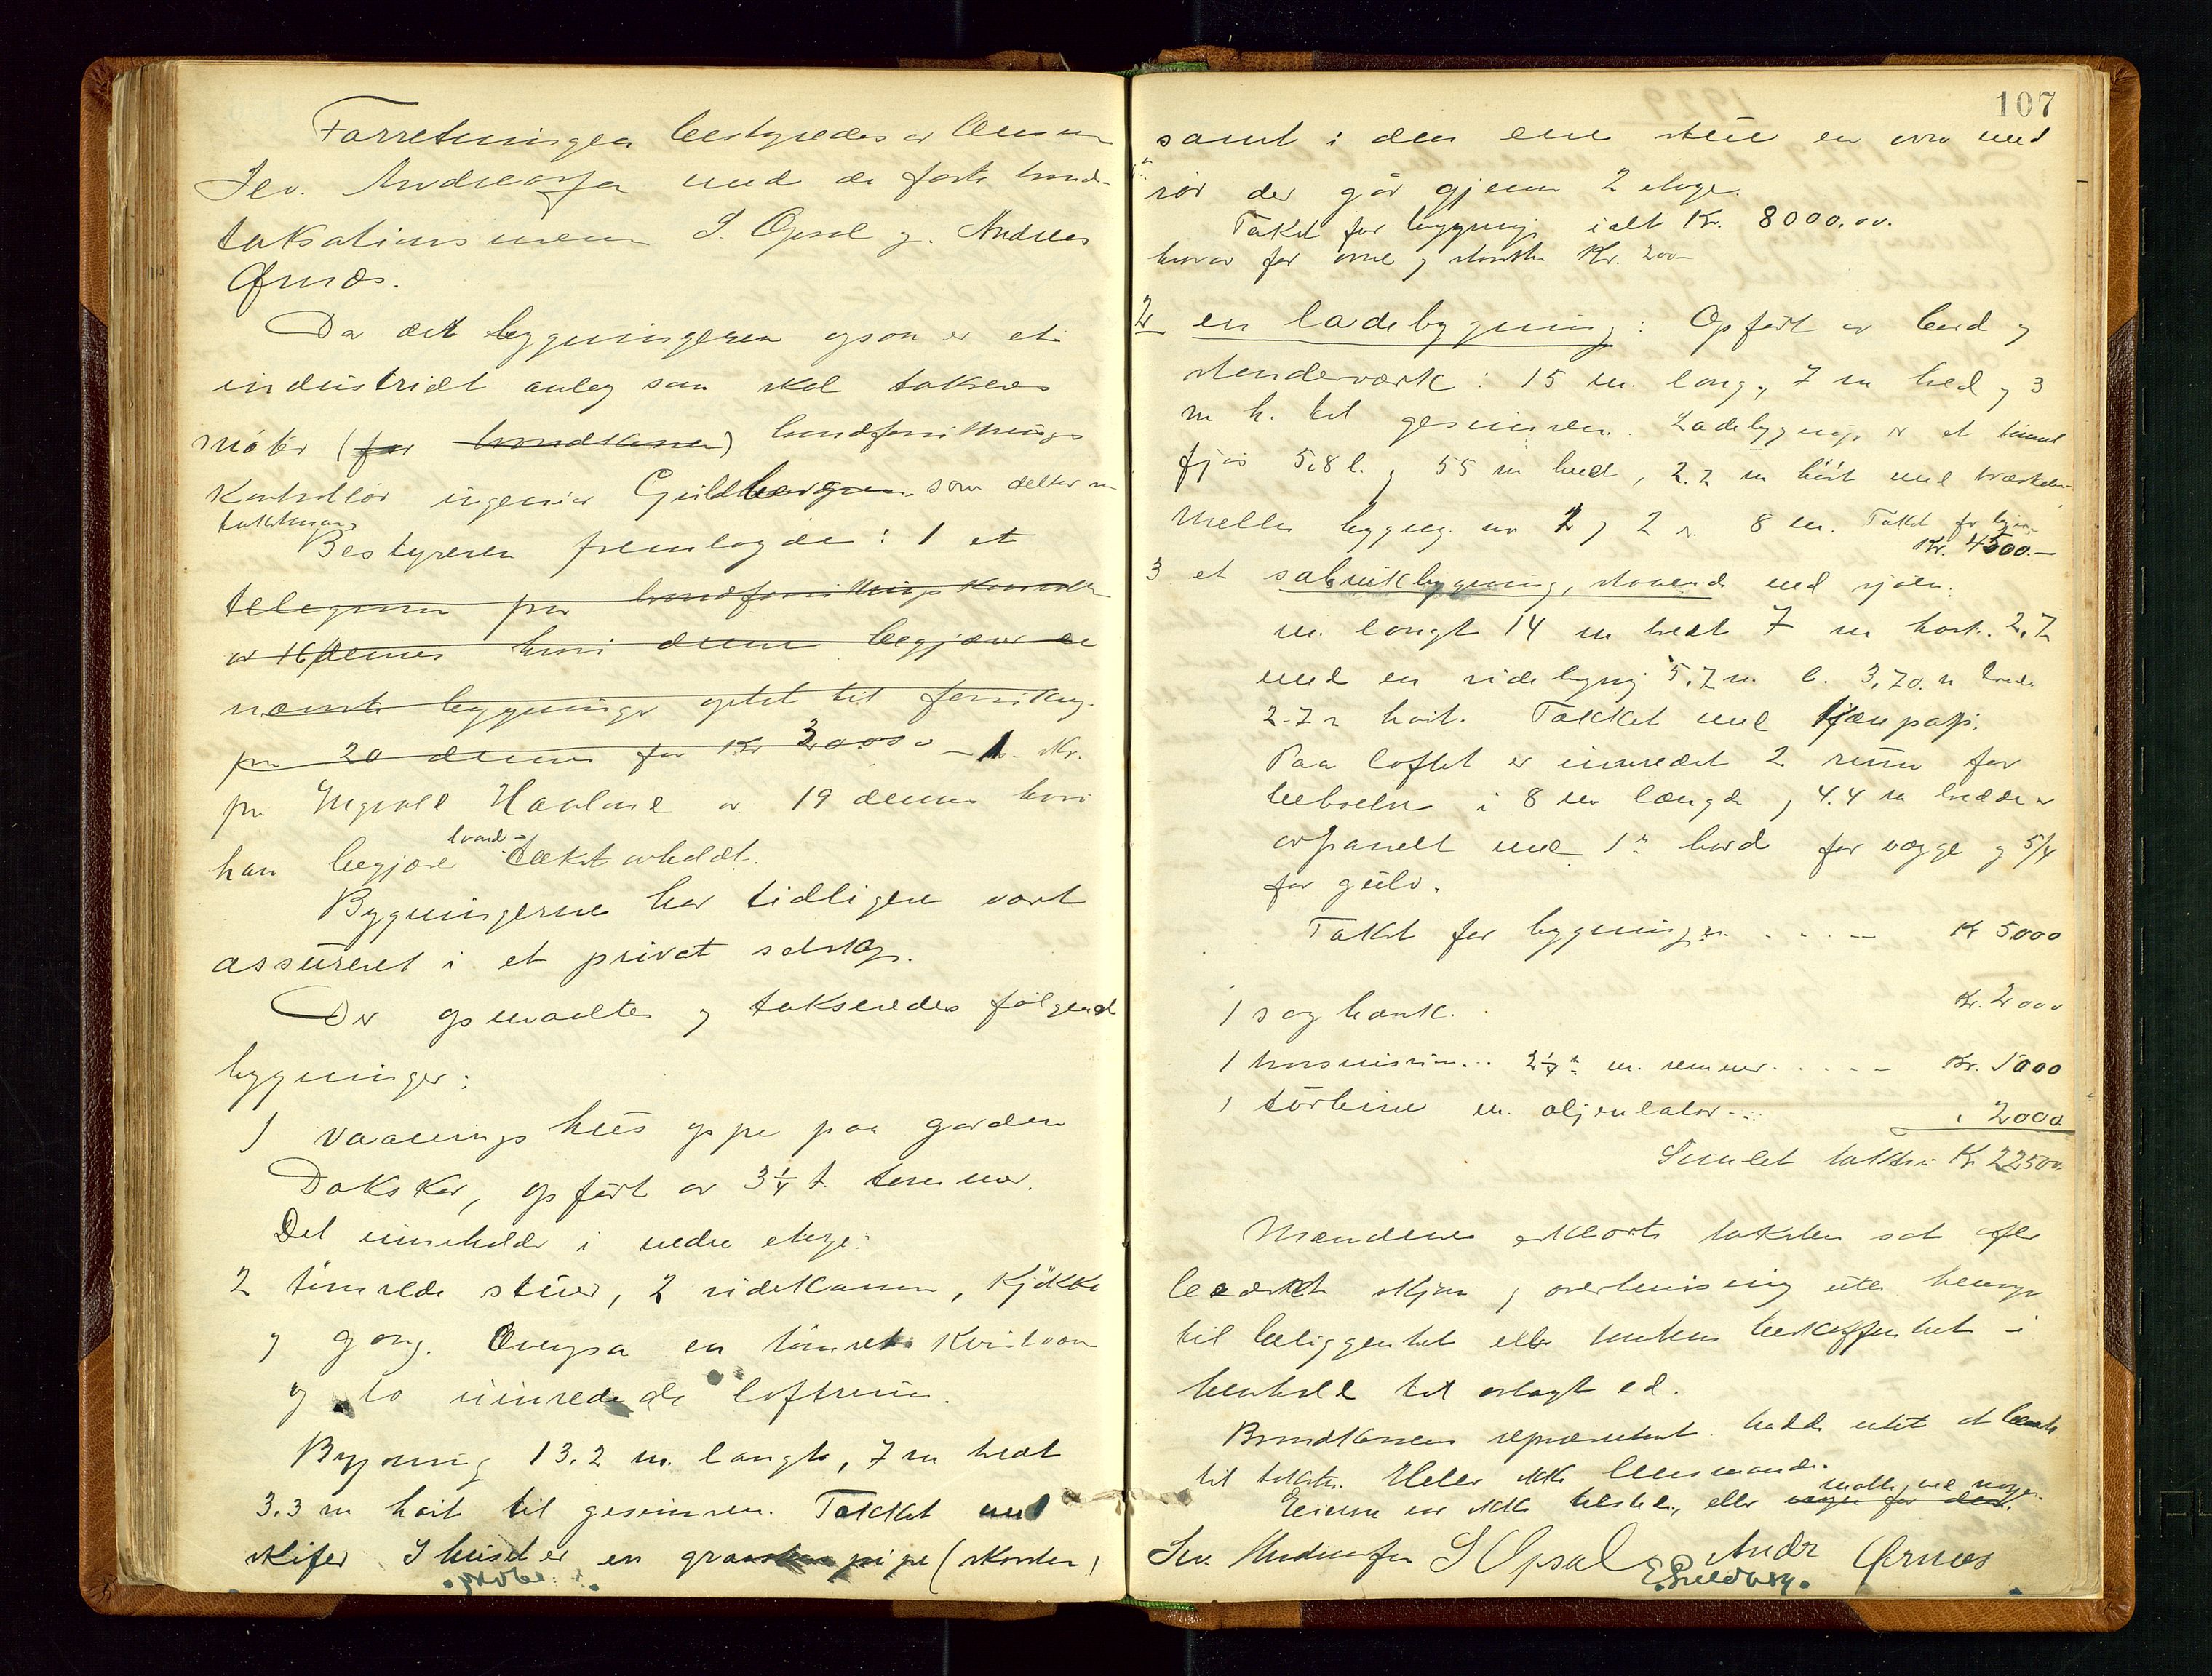 Forretningen bestyredes av lensm
Sev. Andreassen med de faste brand-
taksationsmenn S. Opsal og Andreas
Ørnæs.
Da det bygningerne ogsaa er et
industrielt anleg som skal takseres
møter (for brandkassen) brandforsikrings
Kontrollør ingeniør Guldberg som deltar m
takstmann
Bestyreren fremlagde: 1 et
telegram fra brandforsikrings
av 16 dennes hvori denne begjærer de
nevnte bygninger optat til forsikring
fra 20 dennes for Kr 20000 - 1 skr.
fra Ingvald av 19 dennes hvori
han begjærer brand- takst avholdt.
Bygningerne har tidligere vært
assureret i et privat selskap.
Der opmaaltes og takseredes følgende
bygninger:
1 vaanings hus oppe paa garden
Dokskar, opført av 3¼ t. tømmer.
Det inneholder i nedre etage:
2 tømrede stuer, 2 sidekammer, kjøkken
og gang. Ovenpaa en tømret kvist
og to uinredede loftsrum.
Bygning 13.2 m. langt, 7 m bredt
3.3 m høit til gesimsen. Tækket med
skifer. I huset er en pipe (skorsten)
107
samt i den ene stue en ovn med
rør der går gjennem 2 etage.
Takst for bygning ialt Kr. 8000,00.
herav for ovne og skorsten Kr. 200-
2 en ladebygning: Opført av bord og
stenderværk: 15 m. lang, 7 m bred og 3
m h. til gesimsen. Ladebygning er et tømret
fjøs 5,8 l. og 55 m bred, 2.2 m høit med
Mellem bygng. no 1 og 2 er 8 m. Takst for bygn
Kr. 4500.-
3 et sabrikbygning, staaende ved sjøen.
m. langt 14 m bredt 7 m høit. 2,7
med en sidebygning 5,7 m l. 3,70 m bred
2-7 m høit. Tækket med
Paa loftet er innredet 2 rum for
beboelse i 8 m længde og 4.4 m bredde
avpanelt med 1" bord for vægge og 5/4
for gulv.
Takst for bygningen. . . . - Kr 5000
1 sagbænk. Kr. 2000
1 2¼" m. remmer. . . . . - Kr. 1000
1 turbine m. . . . " 2000
Samlet takst Kr 22500
Mændene erklærte taksten sat efter
bedste skjøn og overbevisning uten hensyn
til beliggenhet eller tomtens beskaffenhet i
henhold til avlagt ed.
Brandkassens repræsentant hadde intet at bemerke
til taksten. Heller ikke lensmanden.
Eieren var ikke tilstede, eller møtte ved nogen for den.
Sev. Andreassen S Opsal E Guldberg. Andr Ørnæs